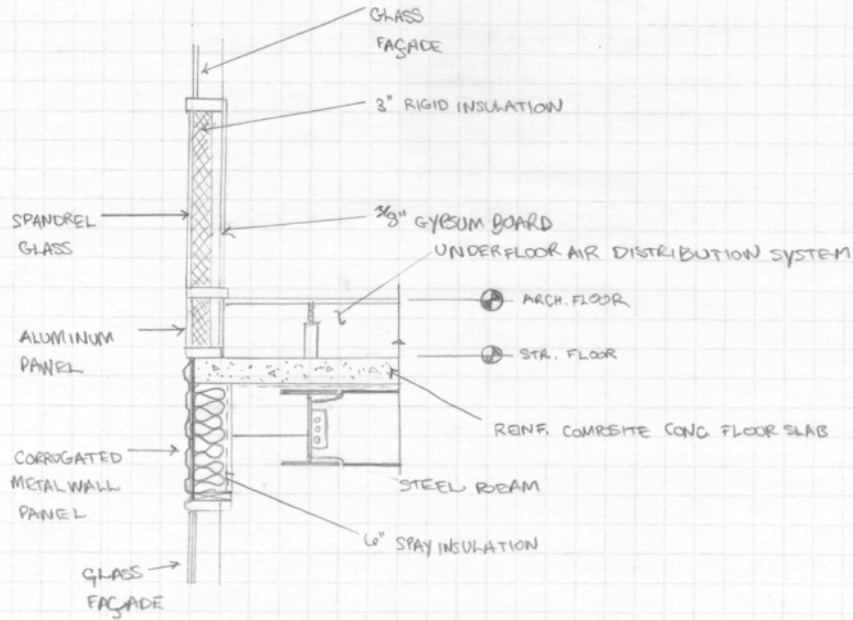 GLASS
FAÇADE
3" RIGID INSULATION
SPANDREL
GLASS
3/8" GYPSUM BOARD
UNDERFLOOR AIR DISTRIBUTION SYSTEM
ARCH. FLOOR
ALUMINUM
PANEL
STR. FLOOR
REINF. COMPSITE CONC. FLOOR SLAB
CORRUGATED
METAL WALL
PANEL
STEEL BEAM
6" SPAY INSULATION
GLASS
FAÇADE